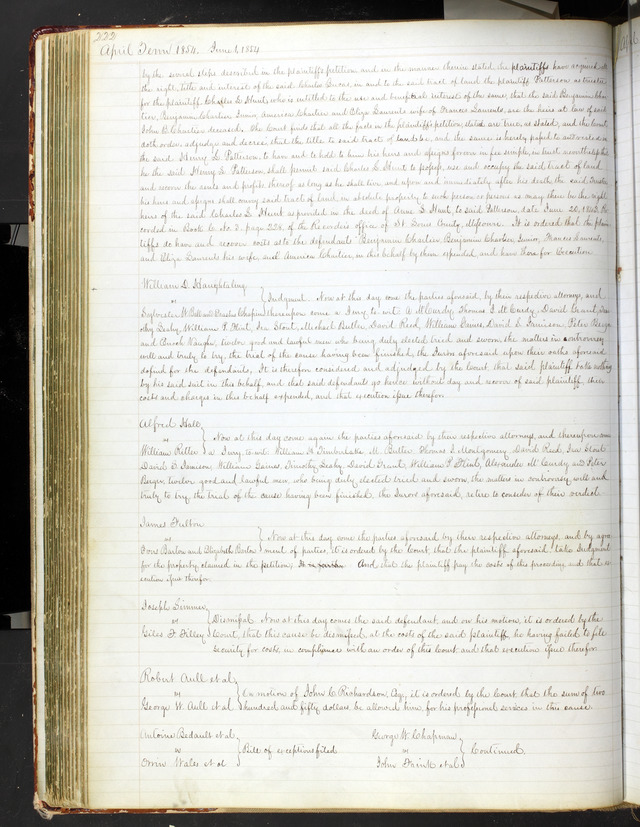 222
April Term 1854. June 1, 1854
by the several steps described in the plaintiffs petition and in the manner therein stated the plaintiffs have acquired all
the right, title and interest of the said Charles Lucas, in and to the said tract of land the plaintiff Patterson as trustee
for the plaintiff Charles L. Hunt, who is entitled to the use and beneficial interest of the same, that the said Benjamin Char
tier, Benjamin Chartier Junior, American Chartier and Eliza Laments wife of Frances Laments are the heirs at law of said
John B. Chartier deceased. The Court finds that all the facts in the plaintiffs petition stated are true, as stated, and the Court
doth order, adjudge and decree, that the title to said tract of land be, and the same is hereby passed to and vested in
the said Henry L. Patterson, to have and to hold to him his heirs and assigns forever in fee simple, in trust nevertheless that
he the said Henry L. Patterson, shall permit said Charles L. Hunt to possess, use and occupy the said tract of land
and receive the rents and profits thereof as long as he shall live and upon and immediately after his death, the said Trustee
his heirs and assigns shall convey said tract of land, in absolute property to such person or persons as may then be the right
heirs of the said Charles L. Hunt as provided in the deed of Anne L. Hunt, to said Patterson, date June 20, 1843, Re
corded in Book No. 2. page 238, of the Recorders office of St. Louis County, Missouri. It is ordered that the plain
tiffs do have and recover costs as to the defendants Benjamin Chartier, Benjamin Chartier, Junior, Frances Laments,
and Eliza Laments his wife, and American Chartier, in this behalf by them expended, and have there for Execution
William D. Haughtaling
vs } Judgment. Now at this day come the parties aforesaid, by their respective attorneys, and
Sylvester W. Ball and Chapin thereupon come a Jury to wit A. McCurdy, Thomas J. McCurdy, David Grant, Tim
othy Leahy, William P. Flint, Ira Stout, Michael Butler, David Reed, William Gaines, David E. Jamison, Peter Berger
and Enoch Vaughn, twelve good and lawful men who being duly elected tried and sworn, the matters in controversy
well and truly to try, the trial of the cause having been finished, the Jurors aforesaid upon their oaths aforesaid
do find for the defendants, It is therefore considered and adjudged by the Court, that said plaintiff take nothing
by his said suit in this behalf, and that said defendants go hence without day and recover of said plaintiff, their
costs and charges in this behalf expended, and that execution issue therefor
Alfred Hall
vs } Now at this day come again the parties aforesaid by their respective attorneys, and thereupon come
William Ritter a Jury to wit William H. Timberlake M. Butler, Thomas J. Montgomery, David Reed, Ira Stout
David E. Jamison, William Gaines, Timothy Leahy, David Grant, William P. Flint, Alexander McCurdy and Peter
Berger, twelve good and lawful men, who being duly elected tried and sworn, the matters in controversy well and
truly to try, the trial of the cause having been finished the Jurors aforesaid, retire to consider of their verdict
James Fulton
vs } Now at this day come the parties aforesaid by their respective attorneys, and by agree
Barlow and Elizabeth Barlow ment of parties, it is ordered by the Court, that the plaintiff aforesaid take Judgment
for the property claimed in the petition, And that the plaintiff pay the costs of this proceeding and that ex
ecution issue therefor
Joseph Simmer,
vs } Dismissal. Now at this day comes the said defendant, and on his motion, it is ordered by the
Giles F. Filley Court, that this cause be dismissed at the costs of the said plaintiff he having failed to file
security for costs, in compliance with an order of this Court and that execution issue therefor.
Robert Aull et al
vs } On motion of John C. Richardson, Esq., it is ordered by the Court that the sum of two
George W. Aull et al hundred and fifty dollars be allowed him, for his professional services in this cause
Antoine Bedault et al
vs } Bill of exceptions filed
Orrin Wales et al
George W. Chapman
vs } Continued.
John et al